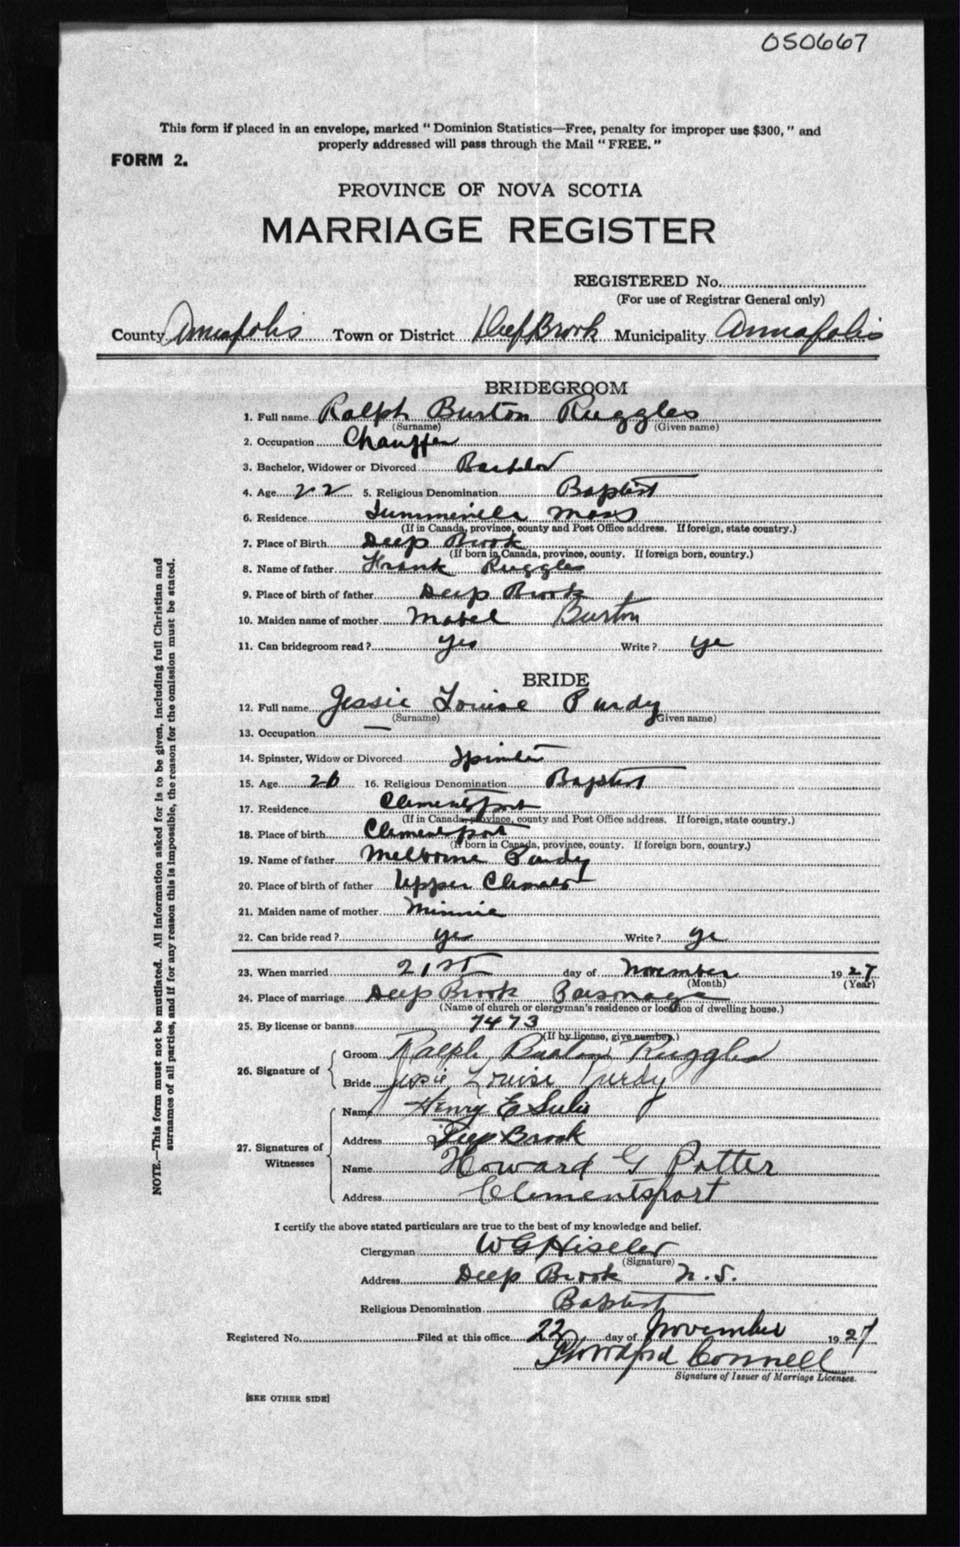 050667
This form if placed in an envelope, marked "Dominion Statistics—Free, penalty for improper use $300," and
properly addressed will pass through the Mail "FREE."
FORM 2.
PROVINCE OF NOVA SCOTIA
MARRIAGE REGISTER
REGISTERED No.
(For use of Registrar General only)
County Annapolis Town or District Deep Brook Municipality Annapolis
BRIDEGROOM
1. Full name Ralph Burton Ruggles
(Surname) (Given name)
2. Occupation Chauffer
3. Bachelor, Widower or Divorced Bachelor
4. Age 22 5. Religious Denomination Baptist
6. Residence Mass
(If in Canada, province, county and Post Office address. If foreign, state country.)
7. Place of Birth Deep Brook
(If born in Canada, province, county. If foreign born, country.)
8. Name of father Frank Ruggles
9. Place of birth of father Deep Brook
10. Maiden name of mother Mabel Burton
11. Can bridegroom read? yes Write? ye
BRIDE
12. Full name Jessie Louise Purdy
(Surname) (Given name)
13. Occupation —
14. Spinster, Widow or Divorced Spinster
15. Age 26 16. Religious Denomination Baptist
17. Residence Clementsport
(If in Canada, province, county and Post Office address. If foreign, state country.)
18. Place of birth Clementsport
(If born in Canada, province, county. If foreign born, country.)
19. Name of father Melborne Purdy
20. Place of birth of father Upper Clements
21. Maiden name of mother Minnie
22. Can bride read? ye Write? ye
23. When married 21st day of November 1927
(Month) (Year)
24. Place of marriage Deep Brook Parsonage
(Name of church or clergyman's residence or location of dwelling house.)
25. By license or banns 7473
(If by license, give number.)
26. Signature of
Groom Ralph Burton Ruggles
Bride Jessie Louise Purdy
27. Signatures of Witnesses
Name Henry E Sulis
Address Deep Brook
Name Howard G Potter
Address Clementsport
I certify the above stated particulars are true to the best of my knowledge and belief.
Clergyman W G Hiseler
(Signature)
Address Deep Brook N.S.
Religious Denomination Baptist
Registered No. Filed at this office 22 day of November 1927
Connell
Signature of Issuer of Marriage Licenses.
[SEE OTHER SIDE]
NOTE.—This form must not be mutilated. All information asked for is to be given, including full Christian and
surnames of all parties, and if for any reason this is impossible, the reason for the omission must be stated.